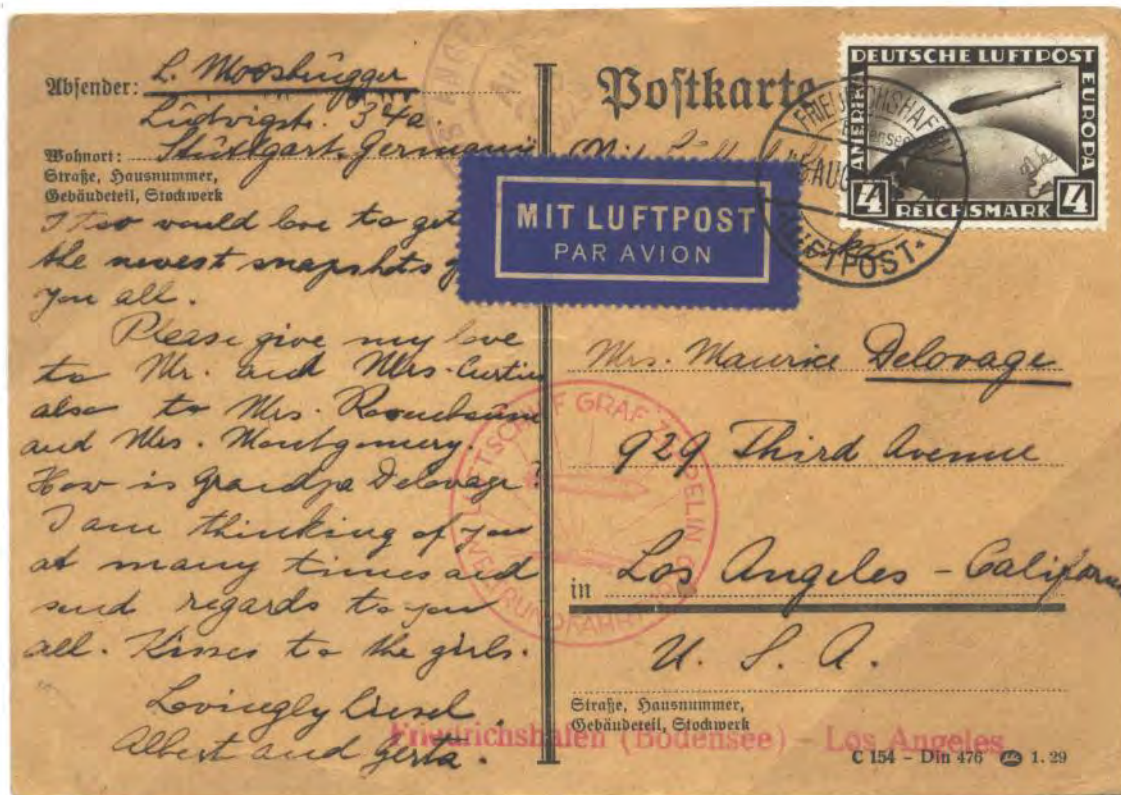 Absender: L. Moosbrugger
Ludwigstr. 34a.
Wohnort: Stuttgart, Germany
Straße, Hausnummer,
Gebäudeteil, Stockwerk
I too would love to get
the newest snapshots
you all.
Please give my love
to Mr. and Mrs. Curtis
also to Mrs. Rosenbaum
and Mrs. Montgomery.
How is Grandpa Delovage?
I am thinking of you
at many times and
send regards to you
all. Kisses to the girls.
Lovingly Liesel.
Albert and Gerta.
Postkarte
MIT LUFTPOST
PAR AVION
DEUTSCHE LUFTPOST
AMERIKA
EUROPA
4 REICHSMARK 4
FRIEDRICHSHAFEN
AUG
LUFTPOST
Mrs. Maurice Delovage
929 Third Avenue
in Los Angeles - California
U. S. A.
Straße, Hausnummer,
Gebäudeteil, Stockwerk
LUFTSCHIFF GRAF ZEPPELIN
Friedrichshafen (Bodensee) – Los Angeles
C 154 - Din 476 1. 29